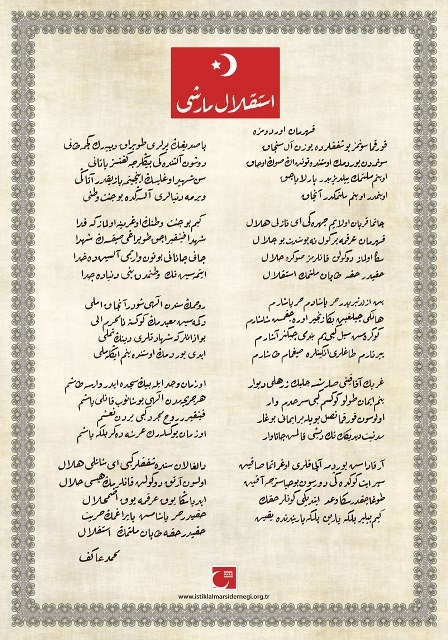 استقلال مارشی
قهرمان اوردومزه
قورقما سونمز بو شفقلرده یوزن آل سنجاق
سونمدن یوردمك اوستنده توتن اڭ صوڭ اوجاق
او بنم ملتمڭ ییلدیزیدر پارلایاجق
او بنمدر او بنم ملتمكدر آنجاق
چاتما قربان اولایم چهره‌ڭی ای نازلی هلال
قهرمان عرقمه بر گول نه بو شدت بو جلال
سڭا اولماز دوكولن قانلرمز صوڭره حلال
حقیدر حقه طاپان ملتمڭ استقلال
بن ازلدنبریدر حر یاشادم حر یاشارم
هانكی چیلغین بڭا زنجیر اوره‌جقمش شاشارم
كوكره‌مش سیل كبی‌یم بندمی چیڭنر آشارم
ییرتارم طاغلری انكینلره صیغمام طاشارم
غربڭ آفاقنی صارمشسه چلیك زرهلی دیوار
بنم ایمان طولو كوكسم كبی سرحدم وار
اولوسون قورقما ناصل بویله بر ایمانی بوغار
مدنیت دیدیكڭ تك دیشی قالمش جاناوار
آرقاداش یوردمه آلچاقلری اوغراتما صاقین
سپر ایت كوكده‌ڭی دورسون بو حیاسزجه آقین
طوغاجقدر سڭا وعد ایتدیكی كونلر حقڭ
كیم بیلیر بلكه یارین بلكه یاریندن ده یقین
باصدیغڭ یرلری طوپراق دییه‌رك كچمه طانی
دوشون آلتنده‌كی بیڭلرجه كفنسز یاتانی
سن شهید اوغلیسڭ اینجیتمه یازیقدر آتاڭی
ویرمه دنیالری آلسه‌ڭ ده بو جنت وطنی
كیم بو جنت وطنڭ اوغرینه اولماز كه فدا
شهدا فیشقیراجق طوپراغی صیقسه‌ڭ شهدا
جانی جانانی بوتون واریمی آلسین ده خدا
ایتمسین تك وطنمدن بنی دنیاده جدا
روحمڭ سندن الهی شودر آنجاق املی
دكمه‌سین معبدمڭ كوكسنه نامحرم الی
بو اذانلر كه شهادتلری دینڭ تملی
ابدی یوردمڭ اوستنده بنم ایڭله‌ملی
او زمان وجد ایله بیڭ سجده ایدر وارسه طاشم
هر جریحه‌مدن الهی بوشانوب قانلی یاشم
فیشقیریر روح مجرد كبی یردن نعشم
او زمان یوكسله‌رك عرشه دكر بلكه باشم
دالغالان سن ده شفقلر كبی ای شانلی هلال
اولسون آرتق دوكولن قانلرمڭ هپسی حلال
ابدیاً سڭا یوق عرقمه یوق اضمحلال
حقیدر حر یاشامش بایراغمڭ حریت
حقیدر حقه طاپان ملتمڭ استقلال
محمد عاكف
www.istiklalmarsidernegi.org.tr